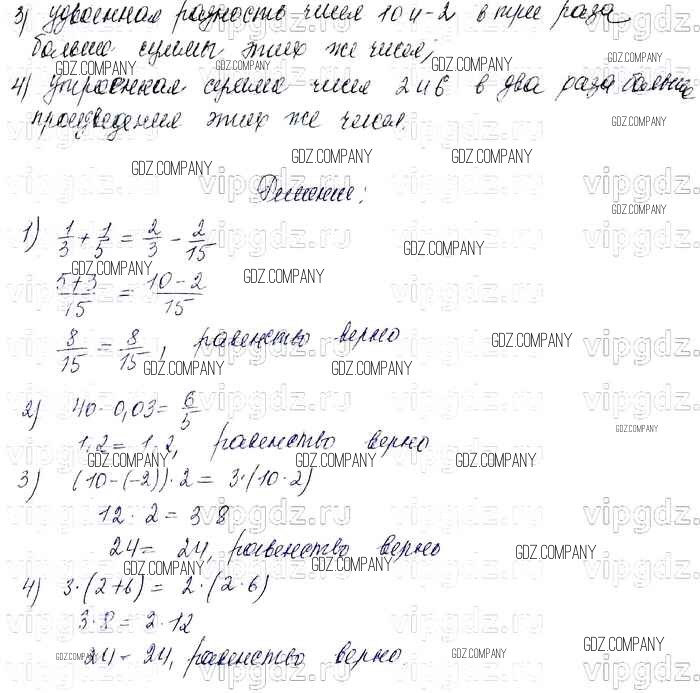 3) удвоенная разность чисел 10 и -2 в три раза
больше суммы этих же чисел;
4) утроенная сумма чисел 2 и 6 в два раза больше
произведения этих же чисел.
Решение:
1) 1/3 + 1/5 = 2/3 - 2/15
5+3/15 = 10-2/15
8/15 = 8/15, равенство верно
2) 40 · 0,03 = 6/5
1.2 = 1.2, равенство верно
3) (10-(-2))·2 = 3·(10·2)
12 · 2 = 3 8
24 = 24, равенство верно
4) 3·(2+6) = 2·(2·6)
3·8 = 2·12
24 - 24, равенство верно
GDZ.COMPANY
vipgdz.ru